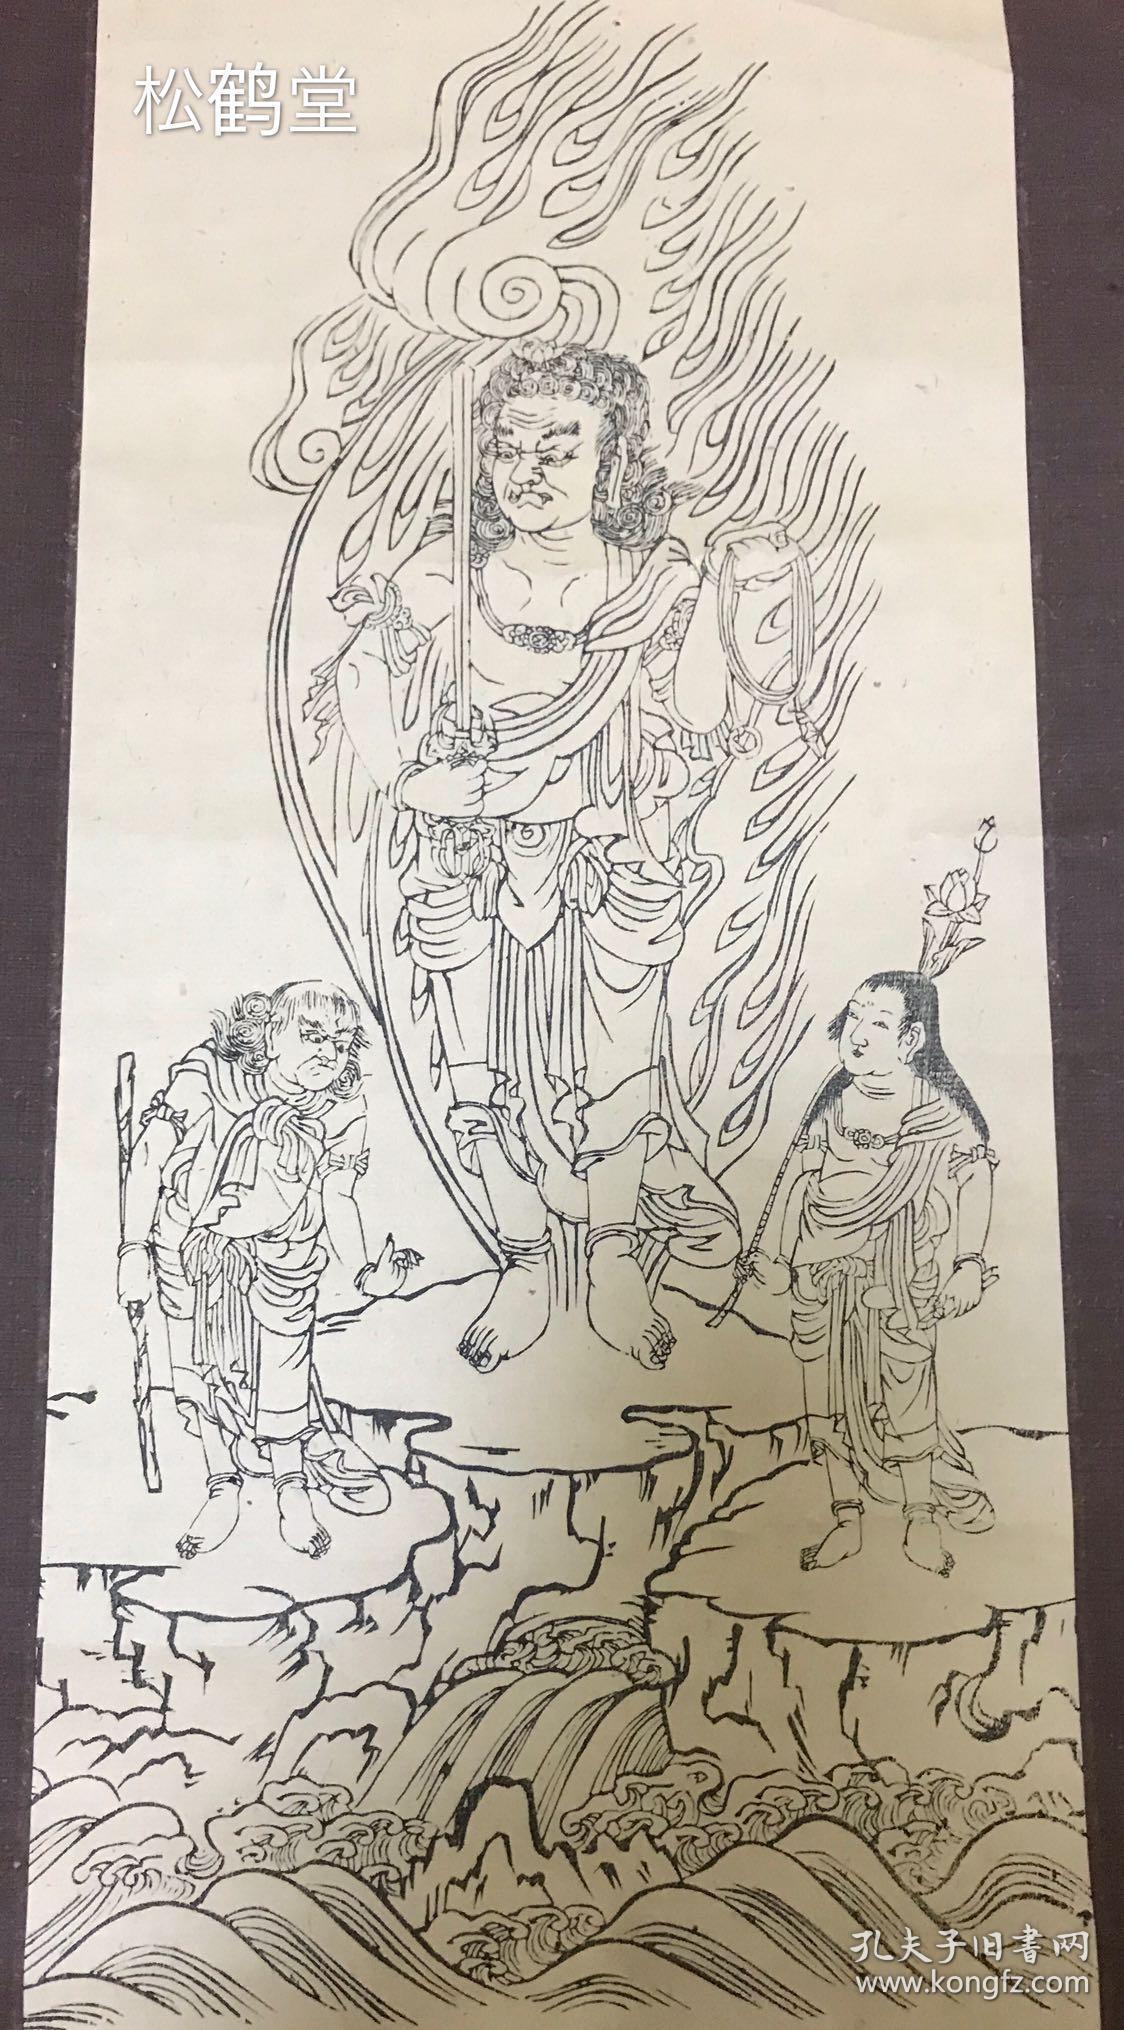 松鹤堂
孔夫子旧書网
www.kongfz.com